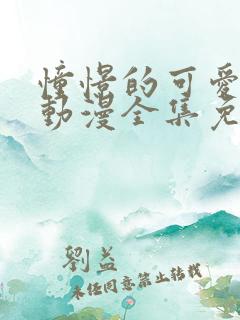 憧憬的可愛
動漫全集免
劉益
未经同意禁止转载